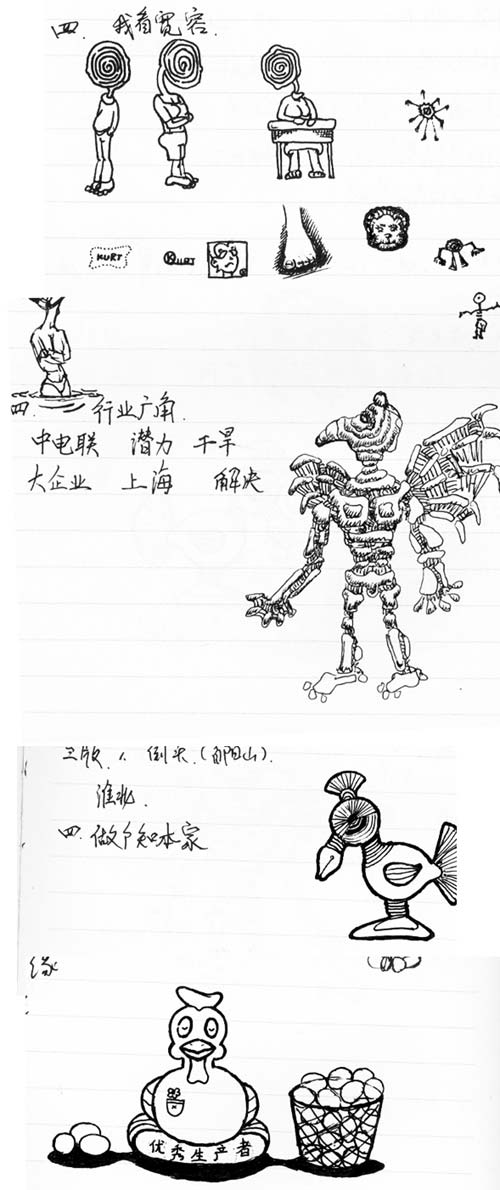 四. 我看宽容.
KURT
KURT
四. 行业广角.
中电联 潜力 干旱
大企业 上海 解决
三版. 1. 倒头. (阳山).
淮北.
四. 做个知本家
缘
优秀生产者